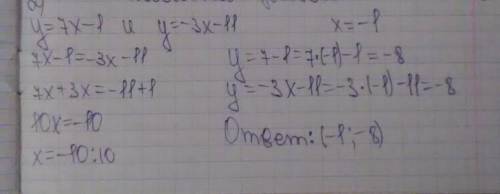 a)
y=7x-1 и y=-3x-11
7x-1=-3x-11
7x+3x=-11+1
10x=-10
x=-10:10
x=-1
y=7-1=7·(-1)-1=-8
y=-3x-11=-3·(-1)-11=-8
Ответ: (-1;-8)